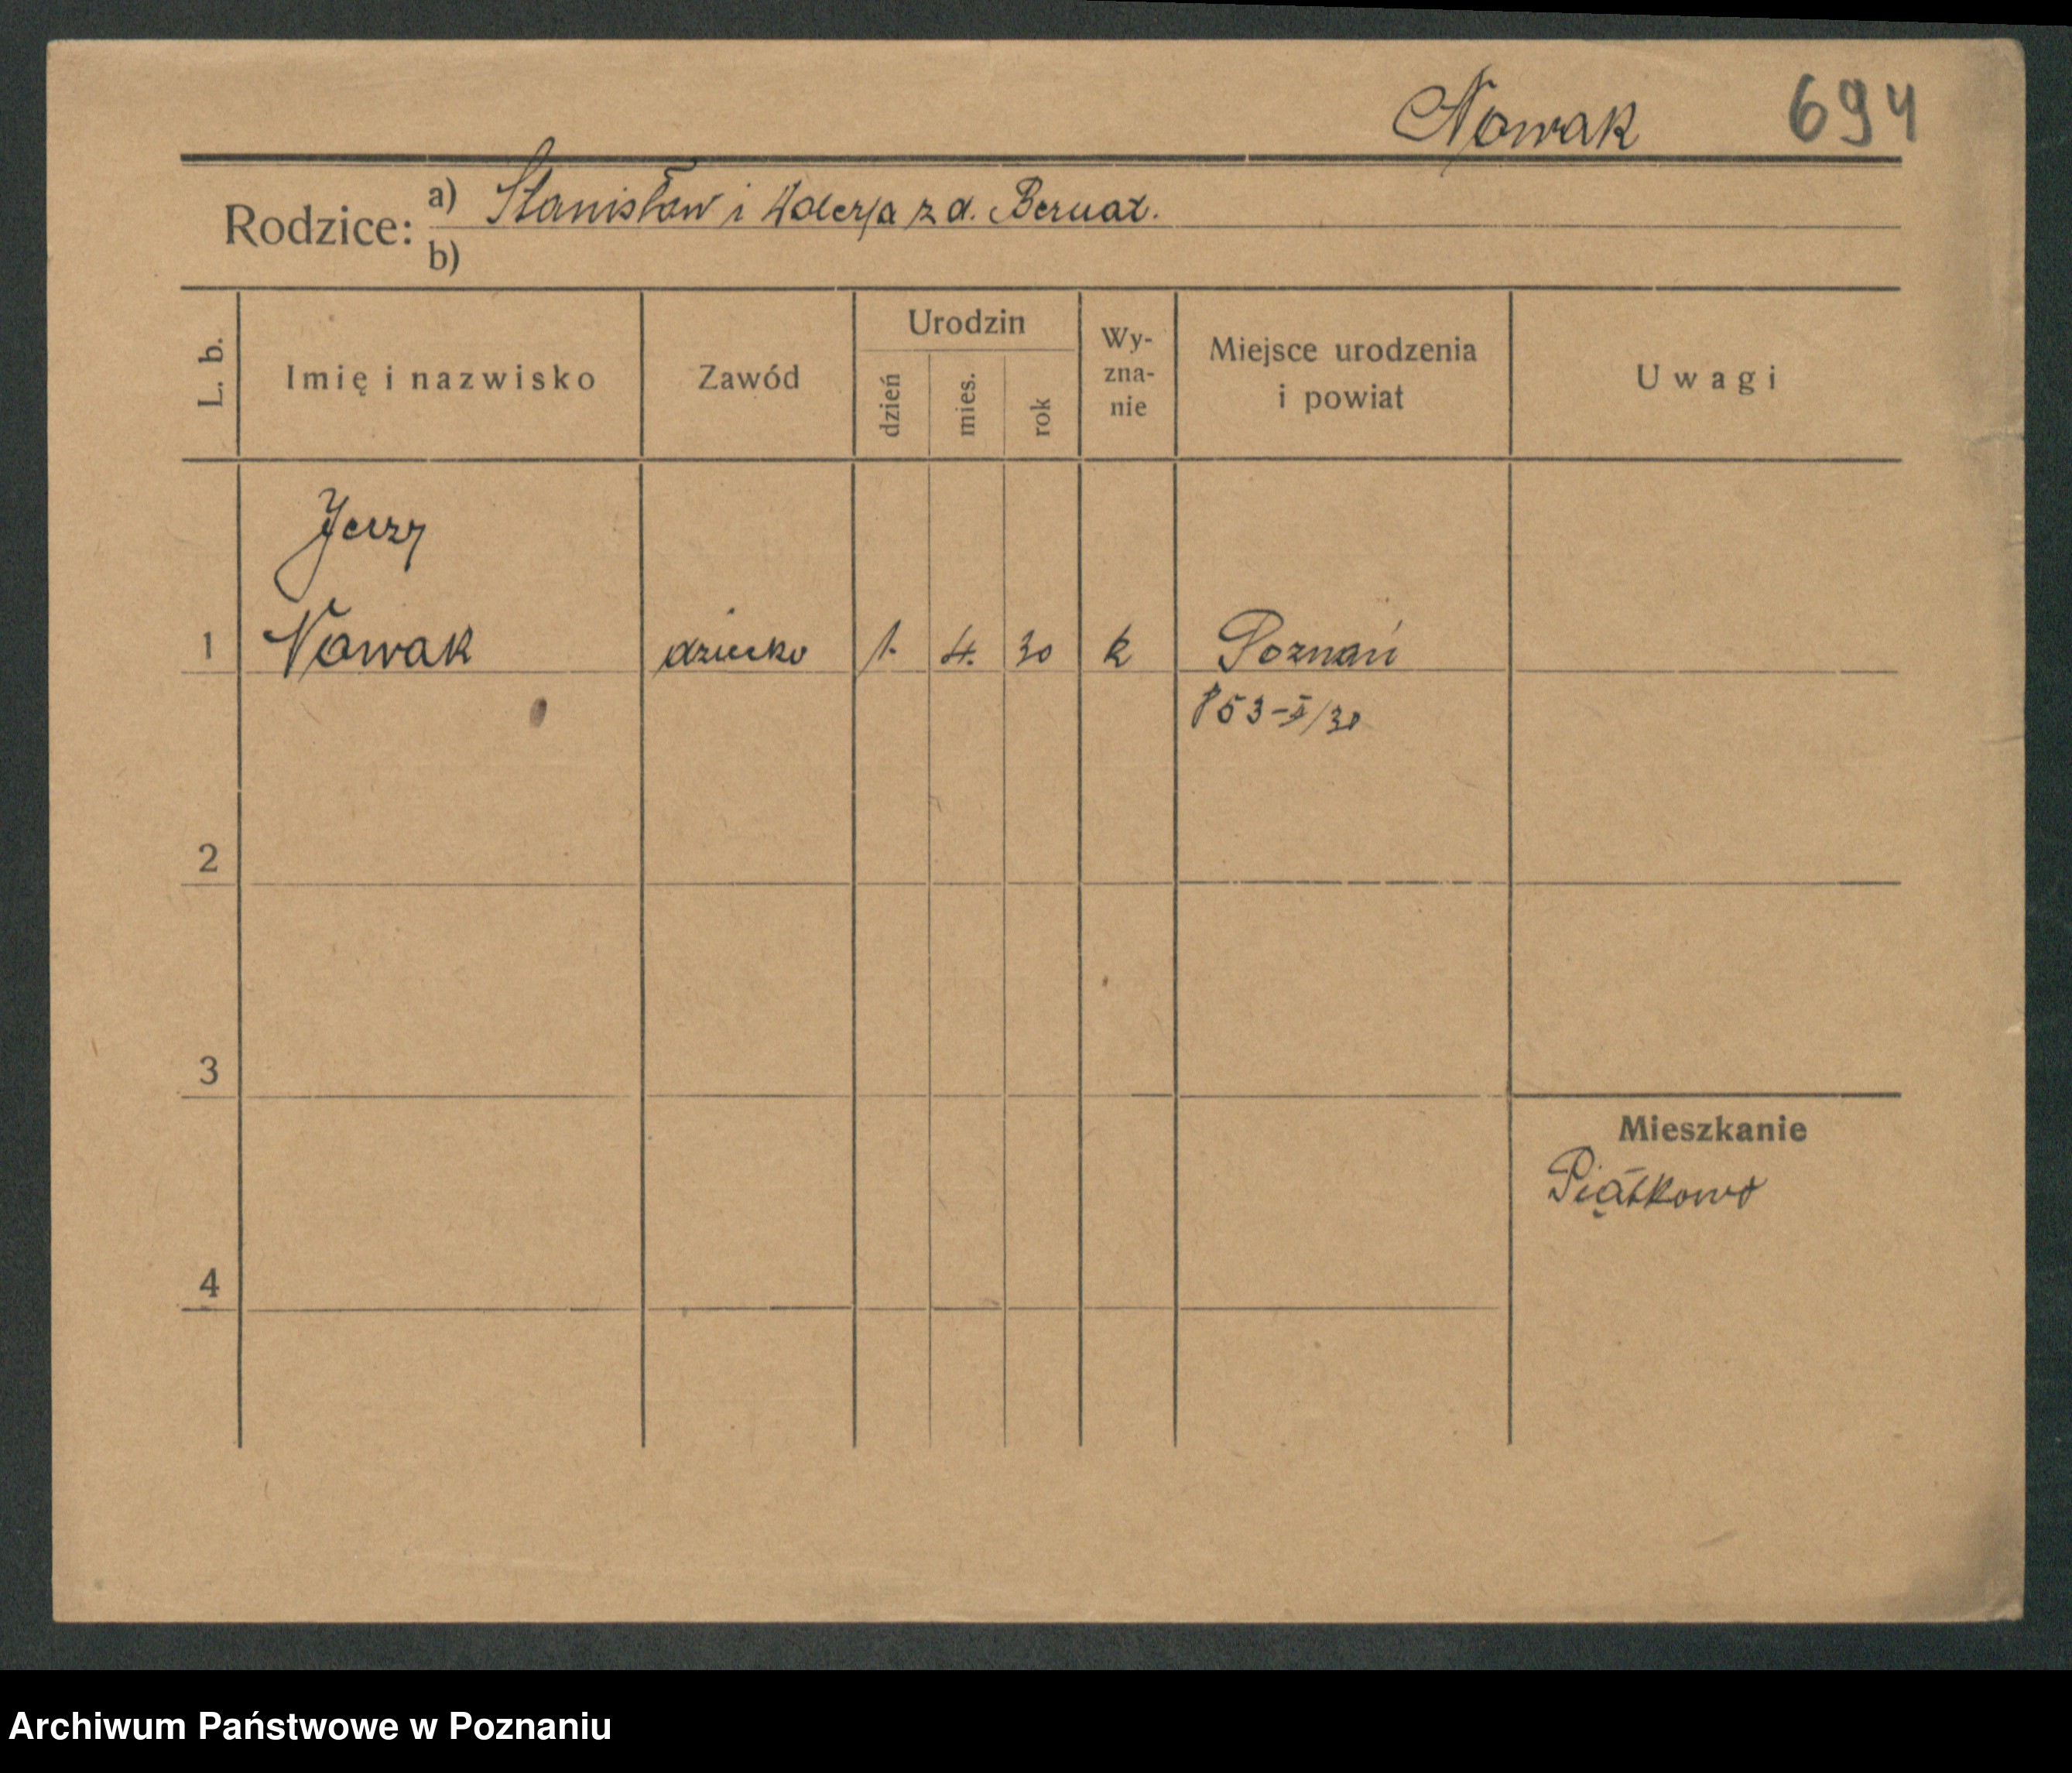 Nowak 694
Rodzice: a) Stanisław i Walerja z d. Bernat.
b)
L. b. Imię i nazwisko Zawód Urodzin dzień mies. rok Wy-zna-nie Miejsce urodzenia i powiat Uwagi
Jerzy
1 Nowak dziecko 1. 4. 30 k Poznań
853-I/30
2
3
Mieszkanie
Piątkowo
4
Archiwum Państwowe w Poznaniu